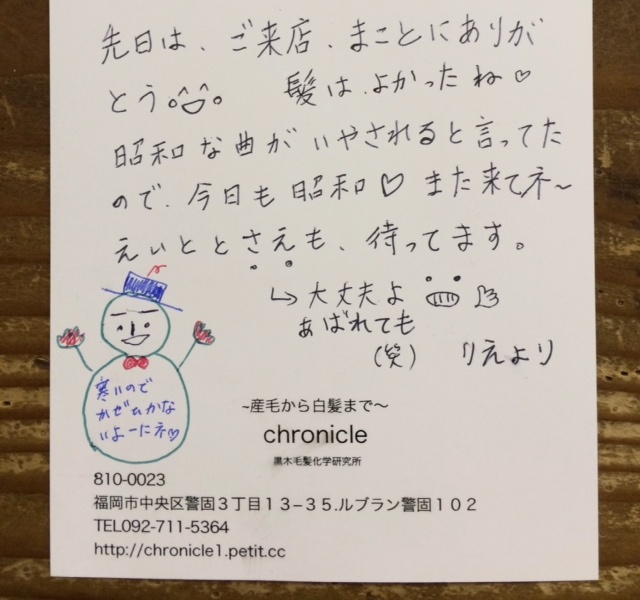 先日は、ご来店、まことにありが
とう。 髪は、よかったね♡
昭和な曲がいやされると言ってた
ので、今日も昭和♡また来てネ〜
えいととさえも、待ってます。
↳大丈夫よ
あばれても
(笑) りえより
寒いので
かぜひかな
いよーにネ♡
~産毛から白髪まで〜
chronicle
黒木毛髪化学研究所
810-0023
福岡市中央区警固3丁目13−35.ルブラン警固102
TEL092-711-5364
http://chronicle1.petit.cc